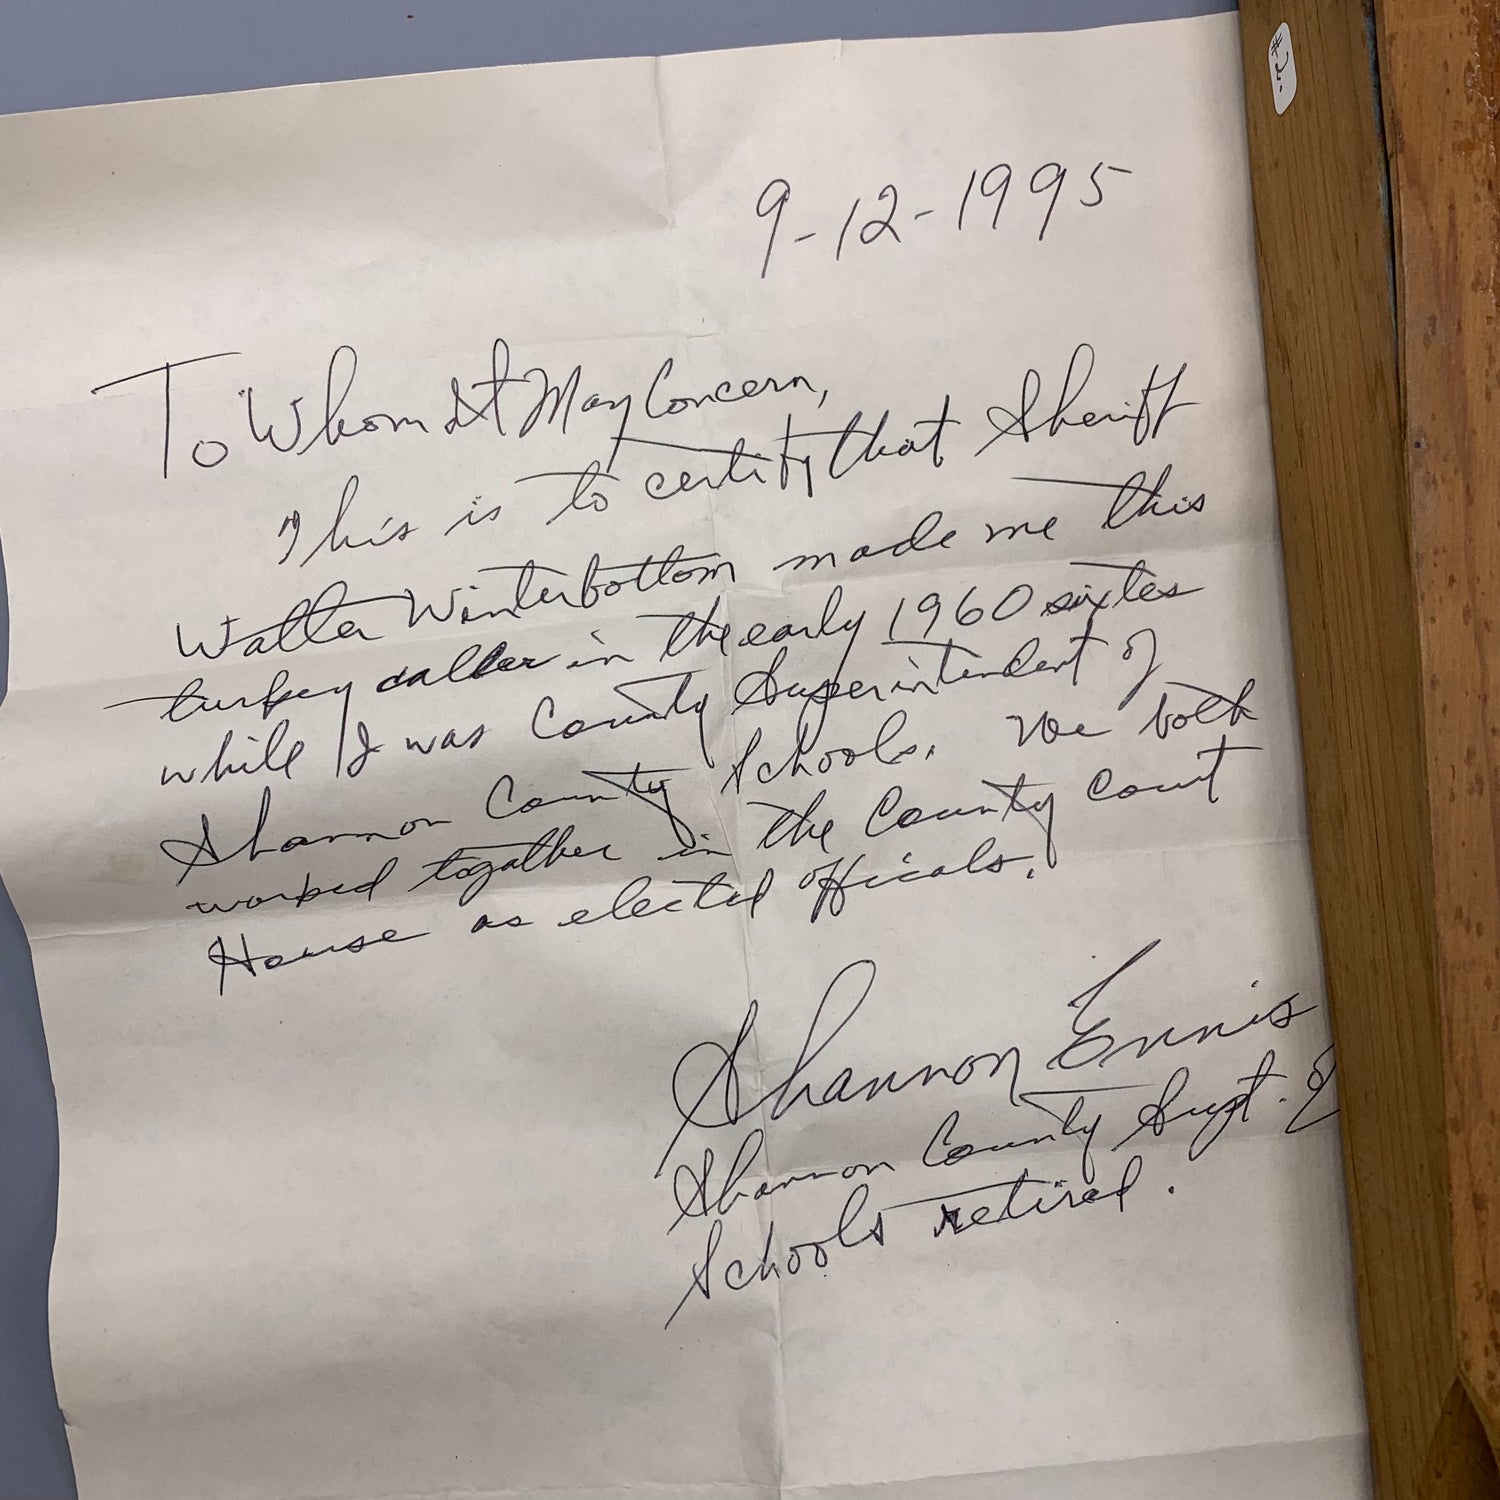 #2.
9-12-1995
To Whom It May Concern,
This is to certify that Sheriff
Walter Winterbottom made me this
turkey caller in the early 1960 sixtes
while I was County Superintendent of
Shannon County Schools. We both
worked together in the County Court
House as elected officals.
Shannon Ennis
Shannon County Supt. of
Schools retired.